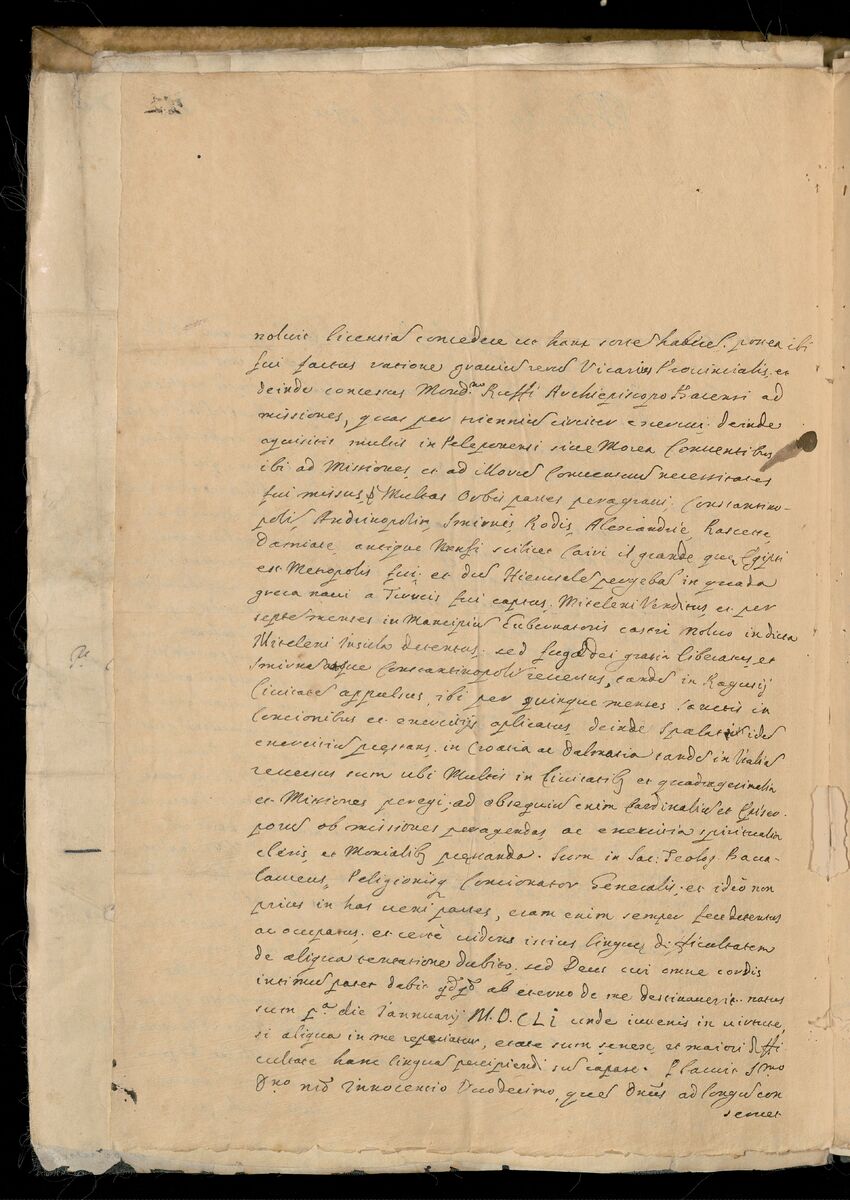 noluit licentiã concedere ut hanc sortẽ haberẽ. postea ibi
fui factus ratione graviũ rerũ Vicarius Provincialis. et
deinde concessus Mond.mo Ruffi Archiepiscopo Barensi ad
missiones, quas per trienniũ circiter exercui. deinde
aquisitis multis in Peleponensi sive Morea Conventibus
ibi ad Missiones, et ad Morũ Conventuũ necessitates
fui missus, Multas Orbis partes peragravi, Constantino-
polis, Andrinopolis, Smirnis, Rodis, Alexandriẹ, Rascette,
Damiate, antiquẹ Menfi scilicet Cairi il grande quẹ Egipti
est Metropolis fui. et dũ Hierusalẽ pergebã in quadã
greca navi a Turcis fui captus, Miteleni Venditus, et per
septẽ menses in Mancipiũ Gubernatoris castri novo in dicta
Miteleni insula detentus. sed fuga dei gratia liberatus, et
Smirnã usque Constantinopoli reversus, tandẽ in Ragusij
Civitatẽ appulsus, ibi per quinque menses sanctis in
Concionibus et exercitijs aplicatus, deinde Spalati idẽ
exercitiũ prestans, in Croatia ac Dalmatia tandẽ in Italiã
reversus sum ubi Multis in Civitatib et quadragesimalia
et Missiones peregi, ad obsequiũ enim Cardinaliũ et Episco-
porũ ob missiones peragendas ac exercitia spiritualia
cleris, et Monialib prestanda. Sum in Sac: Teolog. Bacca-
laureus, Religionisq Concionator Generalis, et ideo non
prius in has veni partes, eram enim semper fere detentus
ac occupatus. et certè videns istius linguẹ dificultatem
de aliqua tentatione dubito, sed Deus cui omne cordis
intimum patet dabit qdqd ab eterno de me destinaverit. natus
sum p.a die Iannuarij M.D.C.LI unde iuvenis in virtute,
si aliqua in me reperiatur, etate sum senex, et maiori diffi
cultate hanc linguã percipiendi sũ capax. Placuit S.mo
D.no nr̃o Innocencio Duodecimo, quẽ Dñus ad longũ con
servet